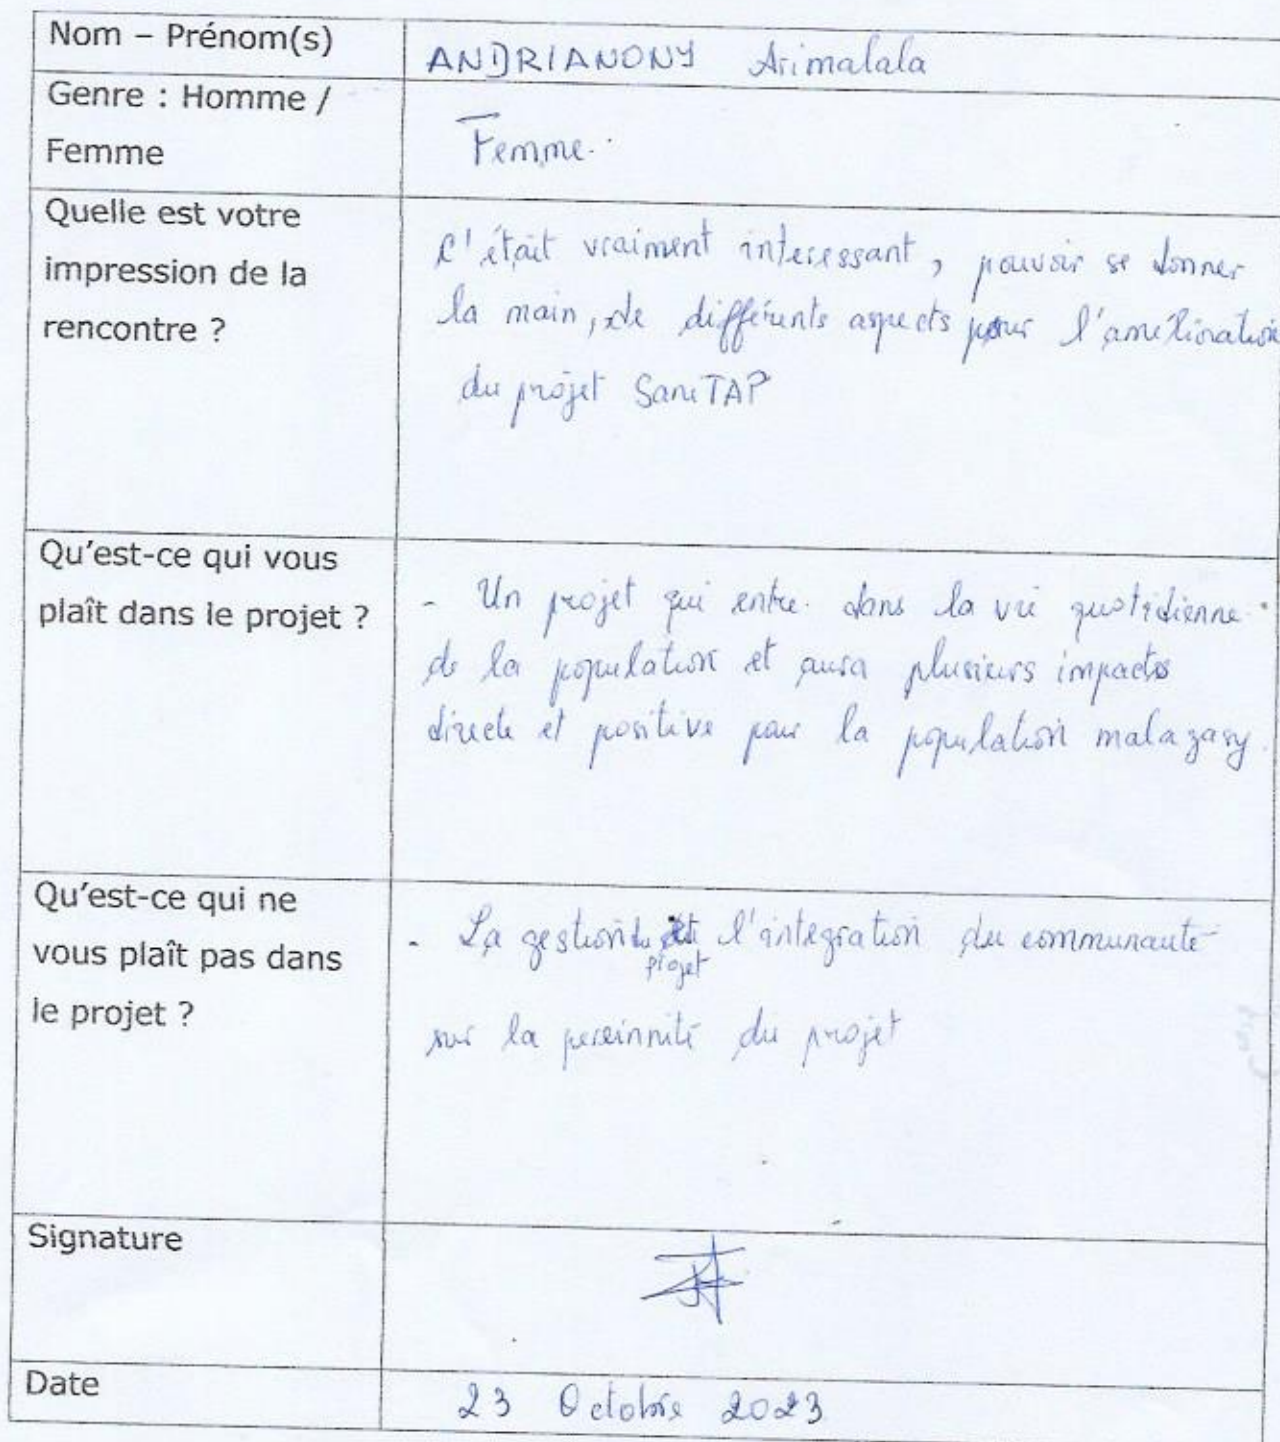 Nom – Prénom(s)
ANDRIANONY Arimalala
Genre : Homme /
Femme
Femme.
Quelle est votre
impression de la
rencontre ?
C'était vraiment interessant, pouvoir se donner
la main, de différents aspects pour l'amélioration
du projet SaniTAP
Qu'est-ce qui vous
plaît dans le projet ?
- Un projet qui entre dans la vie quotidienne
de la population et aura plusieurs impacts
directe et positive pour la population malagasy.
Qu'est-ce qui ne
vous plaît pas dans
le projet ?
- La gestion du projet l'integration du communauté
sur la pereinnité du projet
Signature
Date
23 Octobre 2023